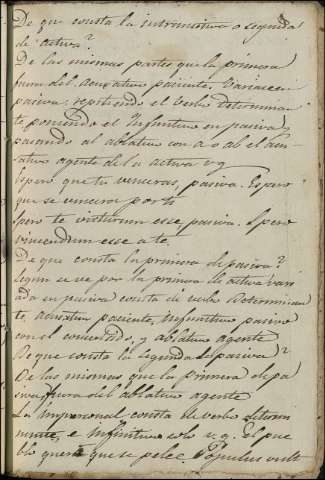 De que consta la intransitiva o segunda
de activa?
De las mismas partes que la primera
fuera del acusativo paciente. Variase en
pasiva: repitiendo el verbo determinan
te, poniendo el Infinitivo en pasiva, y
pasando al ablativo con a o ab el acu-
sativo agente de la activa v g
Espero que tu venceras, pasiva. Espero
que se vencera por ti
Spero te victurum esse, pasiva. Spero
vincendum esse a te.
De que consta la primera de pasiva?
Segun se ve por la primera de activa vari
ada en pasiva consta de verbo determinan
te, acusativo paciente, infinitivo pasivo
con el concertado, y ablativo agente
De que consta la segunda de pasiva?
De las mismas que la primera de pa
siva fuera del ablativo agente
La Impersonal consta de verbo determi
nante, e infinitivo solo v. g. el pue
blo quera que se pelee. Populus vult